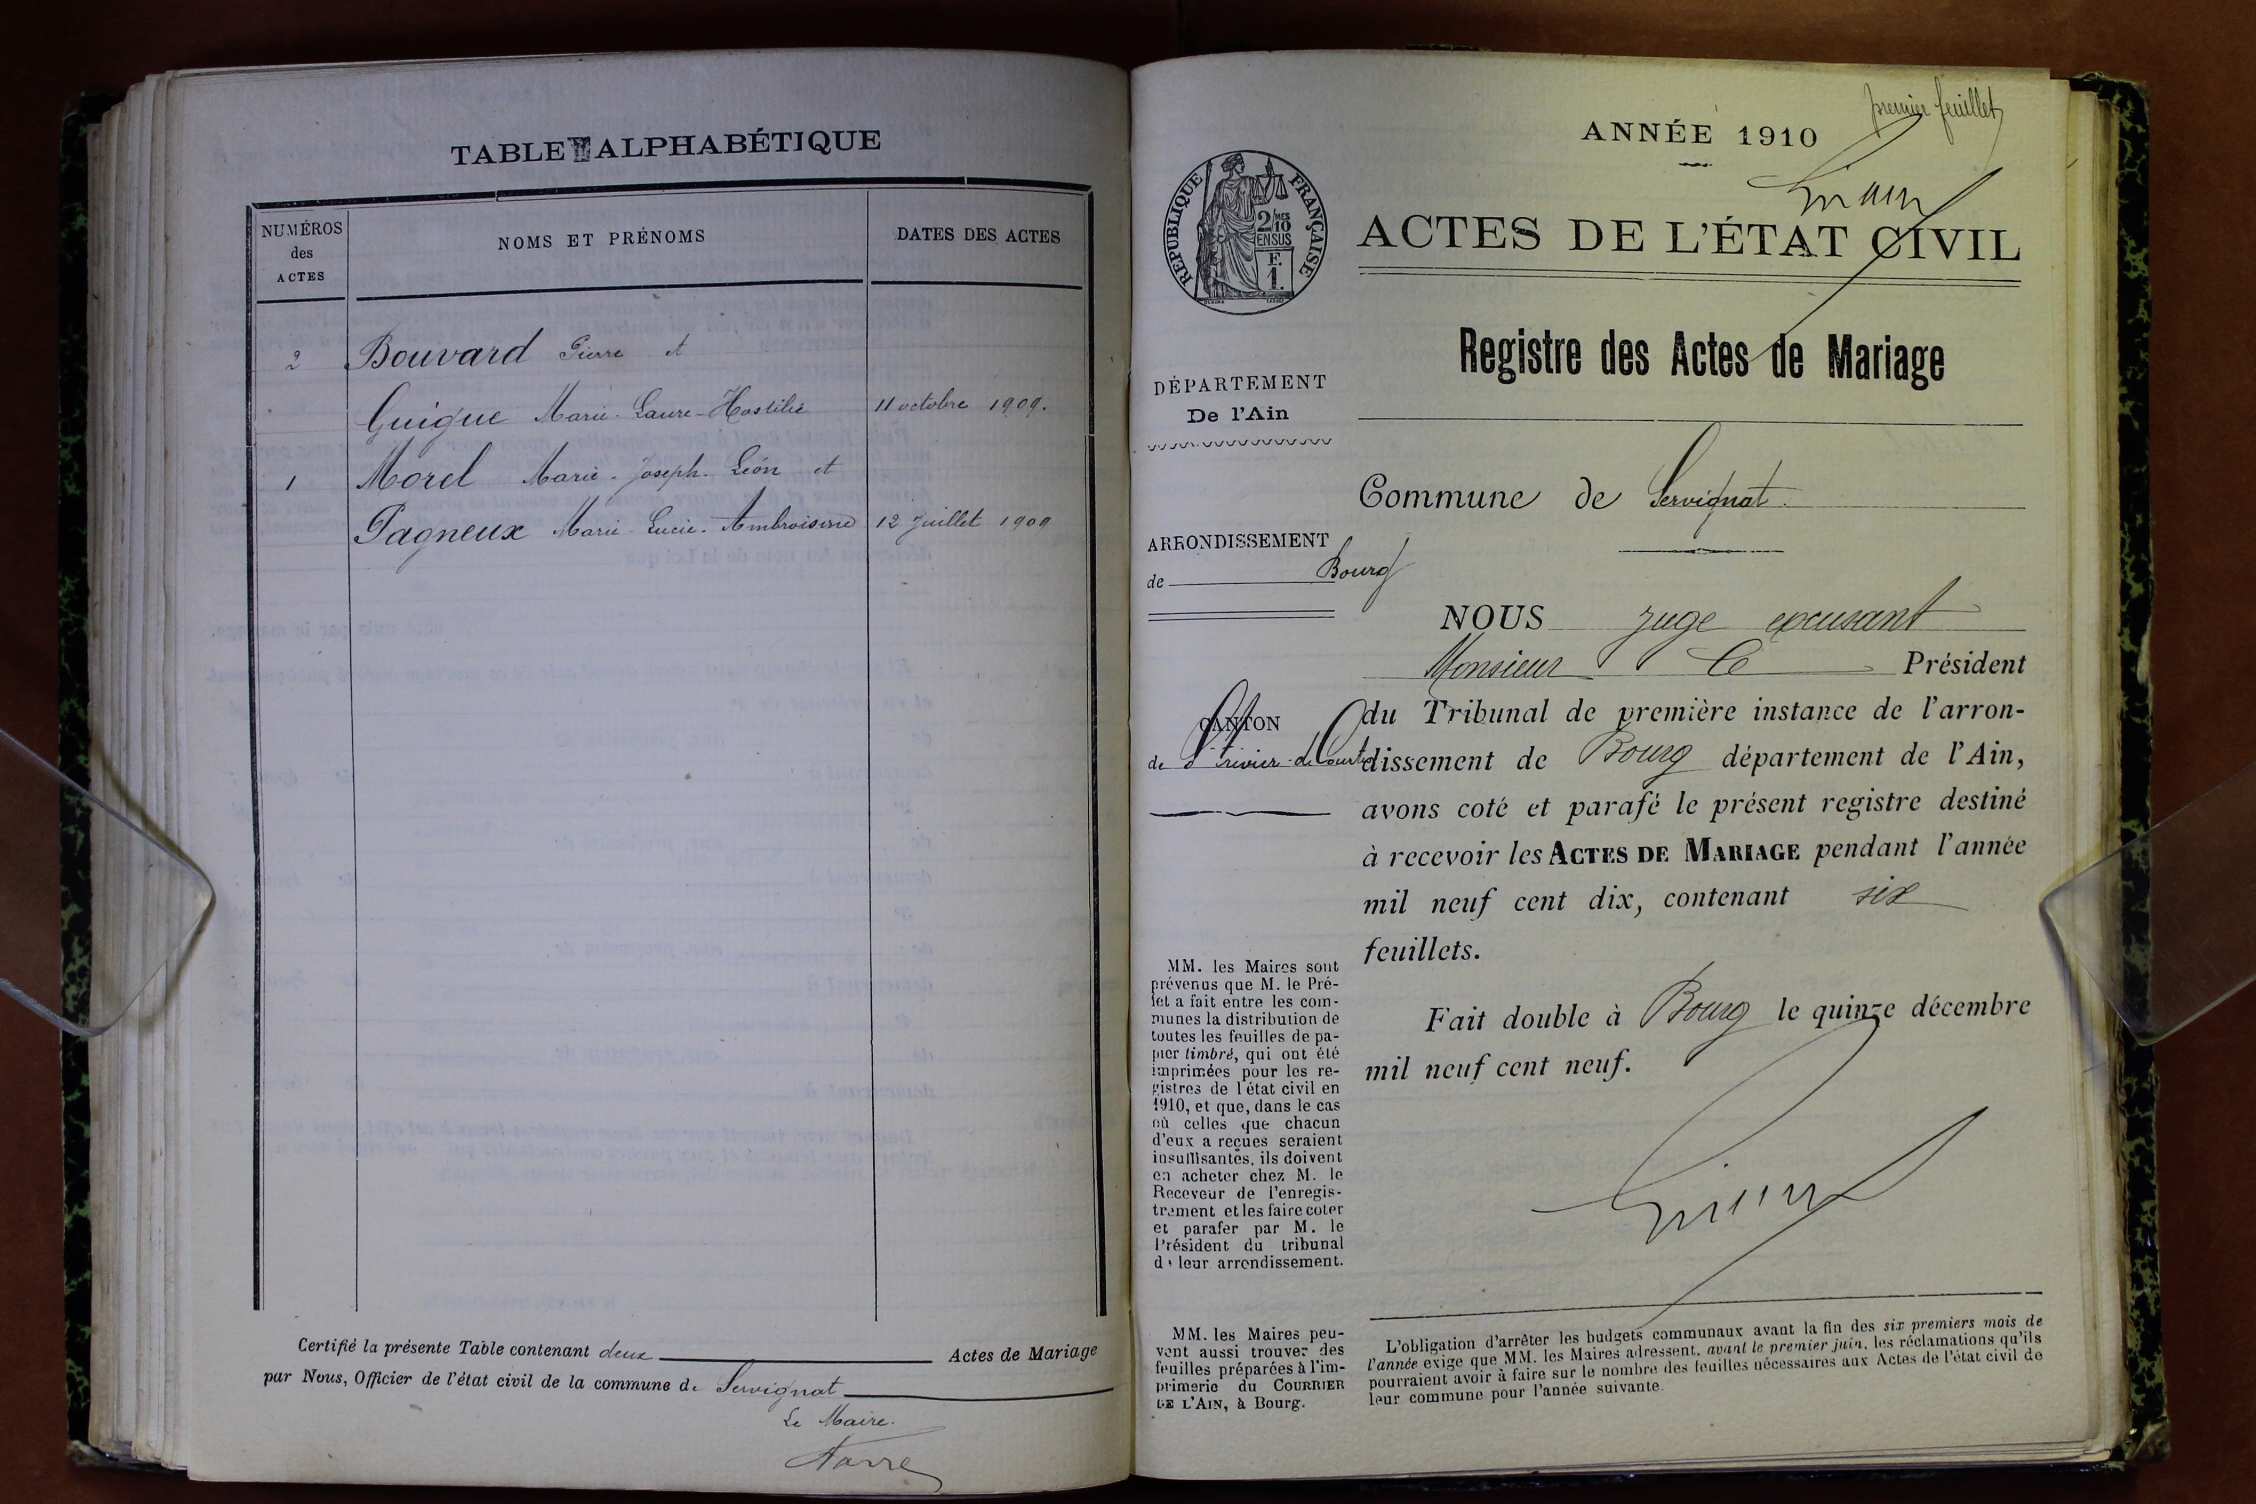 TABLE ALPHABÉTIQUE
NUMÉROS
des
ACTES
NOMS ET PRÉNOMS
DATES DES ACTES
2 Bouvard Pierre et
Guigue Marie-Laure-Hostilie 11 octobre 1909.
1 Morel Marie-Joseph-Léon et
Pagneux Marie-Lucie-Ambroisine 12 Juillet 1909
Certifié la présente Table contenant deux Actes de Mariage
par Nous, Officier de l'état civil de la commune de Servignat
Le Maire.
premier feuillet
ANNÉE 1910
RÉPUBLIQUE FRANÇAISE
2/10 MES
EN SUS
F.
1.
ACTES DE L'ÉTAT CIVIL
Registre des Actes de Mariage
DÉPARTEMENT
De l'Ain
Commune de Servignat.
ARRONDISSEMENT
de Bourg
CANTON
de St Trivier-de-Courtes
NOUS juge excusant
Monsieur le Président
du Tribunal de première instance de l'arron-
dissement de Bourg département de l'Ain,
avons coté et parafé le présent registre destiné
à recevoir les ACTES DE MARIAGE pendant l'année
mil neuf cent dix, contenant six
feuillets.
Fait double à Bourg le quinze décembre
mil neuf cent neuf.
MM. les Maires sont
prévenus que M. le Pré-
fet a fait entre les com-
munes la distribution de
toutes les feuilles de pa-
pier timbré, qui ont été
imprimées pour les re-
gistres de l'état civil en
1910, et que, dans le cas
où celles que chacun
d'eux a reçues seraient
insuffisantes, ils doivent
en acheter chez M. le
Receveur de l'enregis-
trement et les faire coter
et parafer par M. le
Président du tribunal
de leur arrondissement.
MM. les Maires peu-
vent aussi trouver des
feuilles préparées à l'im-
primerie du COURRIER
DE L'AIN, à Bourg.
L'obligation d'arrêter les budgets communaux avant la fin des six premiers mois de
l'année exige que MM. les Maires adressent, avant le premier juin, les réclamations qu'ils
pourraient avoir à faire sur le nombre des feuilles nécessaires aux Actes de l'état civil de
leur commune pour l'année suivante.